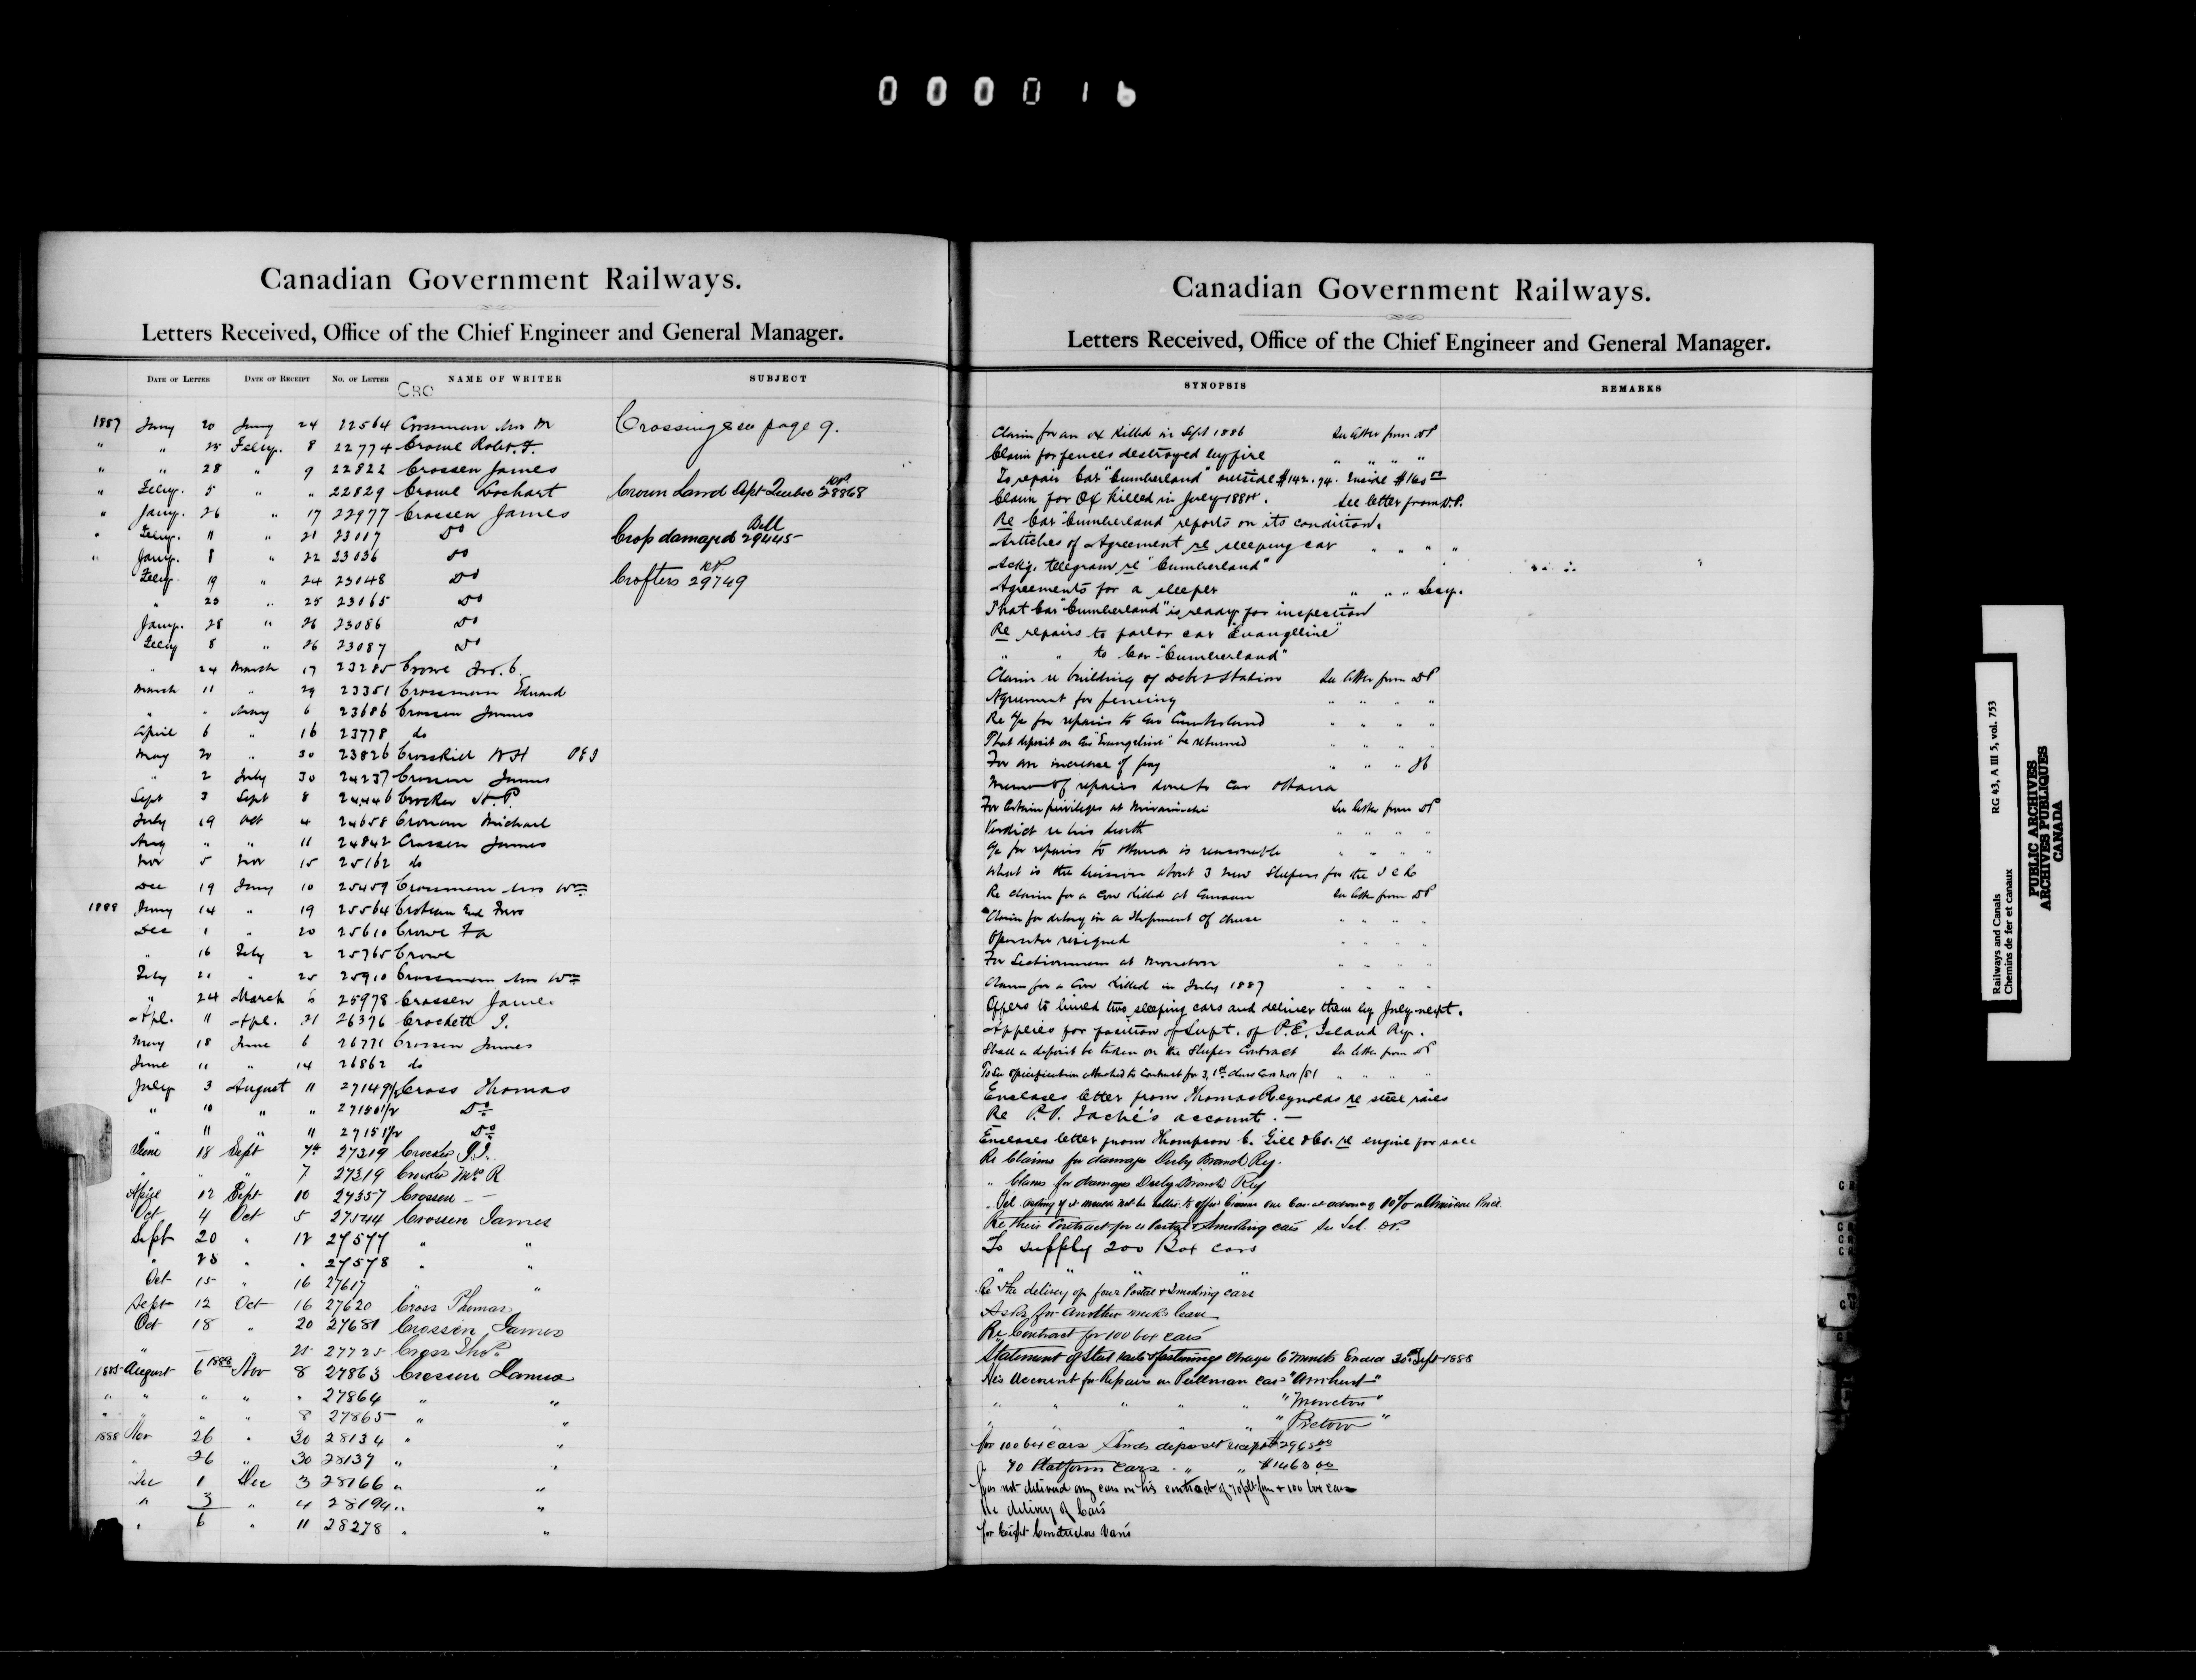 000016
Canadian Government Railways.
Letters Received, Office of the Chief Engineer and General Manager.
DATE OF LETTER DATE OF RECEIPT No. OF LETTER NAME OF WRITER SUBJECT
CRO
1887 Jany 20 Jany 24 22564 Crossman Mrs M Crossings see page 9.
" " 25 Feby. 8 22774 Crowe Robt. F.
" " 28 " 9 22822 Crossen James
" Feby. 5 " " 22829 Crowe Lochart Crown Land Dept Quebec DP 28868
" Jany. 26 " 17 22977 Crossen James
" Feby. 11 " 21 23017 Do Crop damaged Bell 29445
" Jany. 8 " 22 23036 do
Feby. 19 " 24 23048 Do Crofters DP 29749
" 23 " 25 23065 Do
Jany. 28 " 26 23086 Do
Feby 8 " 26 23087 Do
" 24 March 17 23285 Crowe Jno. C.
March 11 " 29 23351 Crossman Edward
" " May 6 23686 Crossen James
April 6 " 16 23778 do
May 20 " 30 23826 Crosskill W H P E I
" 2 July 30 24237 Crossen James
Sept 3 Sept 8 24446 Crocker H. P.
July 19 Oct 4 24658 Cronan Michael
Aug " " 11 24842 Crossen James
Nov 5 Nov 15 25162 do
Dec 19 Jany 10 25459 Crossman Mrs Wm
1888 Jany 14 " 19 25564 Croteau
Dec 1 " 20 25610 Crowe
" 16 Feby 2 25765 Crowe
Feby 21 " 25 25910 Crossman Mrs Wm
" 24 March 5 25978 Crossen James
Apl. 11 Apl. 21 26376 Crockett J.
May 18 June 6 26771 Crossen James
June 11 " 14 26862 do
July 3 August 11 27149 1/2 Cross Thomas
" 10 " " 27150 1/2 Do
" 11 " 11 27151 1/2 Do
June 18 Sept 7th 27319 Crocker J.J.
" " 7 27319 Crocker Mrs R
April 12 Sept 10 27357 Crossen
Oct 4 Oct 5 27544 Crossen James
Sept 20 " 12 27577 " "
" 28 " " 27578 " "
Oct 15 " 16 27617 " "
Sept 12 Oct 16 27620 Cross Thomas
Oct 18 " 20 27681 Crossen James
" — " 25 27725 Cross Thos.
1885 August 6 1888 Nov 8 27863 Crossen James
" " " " " 27864 " "
" " " " 8 27865 " "
1888 Nov 26 " 30 28134 " "
" 26 " 30 28139 " "
Dec 1 Dec 3 28166 " "
" 3 " 4 28194 " "
" 6 " 11 28278 " "
Canadian Government Railways.
Letters Received, Office of the Chief Engineer and General Manager.
SYNOPSIS REMARKS
Claim for an ox killed in Sept 1886 See letter from DP
Claim for fences destroyed by fire " " " "
To repair Car "Cumberland" outside $142.94. Inside $160 00
Claim for Ox killed in July 1884. See letter from D.P.
Re Car "Cumberland" reports on its condition.
Articles of Agreement re sleeping car " " " "
Ackg. telegram re "Cumberland"
Agreements for a sleeper " " " Secy.
That Car "Cumberland" is ready for inspection
Re repairs to parlor car "Evangeline"
" " to Car "Cumberland"
Claim re building of Debert Station See letter from DP
Agreement for fencing " " " "
Re a/c for repairs to Car Cumberland " " " "
That deposit on Car "Evangeline" be returned " " " "
For an increase of pay " " "
Memo of repairs done to Car Ottawa
For certain privileges at Miramichi See letter from DP
Verdict re his death " " " "
a/c for repairs to Ottawa is reasonable " " " "
What is the decision about 3 new Sleepers for the I C R
Re claim for a Cow killed at See letter from DP
Claim for delay in a shipment of cheese " " " "
Operator resigned " " " "
For Sectionman at Moncton " " " "
Claim for a Cow killed in July 1887 " " " "
Offers to build two sleeping cars and deliver them by July next.
Applies for position of Supt. of P.E. Island Ry.
Shall a deposit be taken on the Sleeper Contract See letter from DP
To See specification attached to Contract for 3, 1st class Cars Nov /81 " " " "
Encloses letter from Thomas Reynolds re steel rails
Re P.V. Taché's account. —
Encloses letter from Thompson C. Gill & Co. re engine for sale
Re Claims for damage Derby Branch Ry.
" Claims for damages Derby Branch Ry
Tel. asking if it would not be better to offer Crossen one Car at advance of 10% on Price
Re their Contract for a Postal & Smoking cars See Tel. DP.
To supply 200 Box cars
" " "
Re the delivery of four Postal & Smoking cars
Asks for another weeks leave
Re Contract for 100 box cars
Statement of Steel rails & fastenings charges 6 months Ended 30th Sept 1888
His Account for Repairs on Pullman car "Amherst"
" " " " " "Moncton"
" " " " " "Pictou"
for 100 box cars Sends deposit receipt $2965.00
" 70 Platform cars " " $1463.00
has not delivered any cars on his contract of 70 plat fm & 100 box cars
Re delivery of Cars
for Eight Conductors Vans
Railways and Canals RG 43, A III 5, vol. 753
Chemins de fer et canaux
PUBLIC ARCHIVES
ARCHIVES PUBLIQUES
CANADA